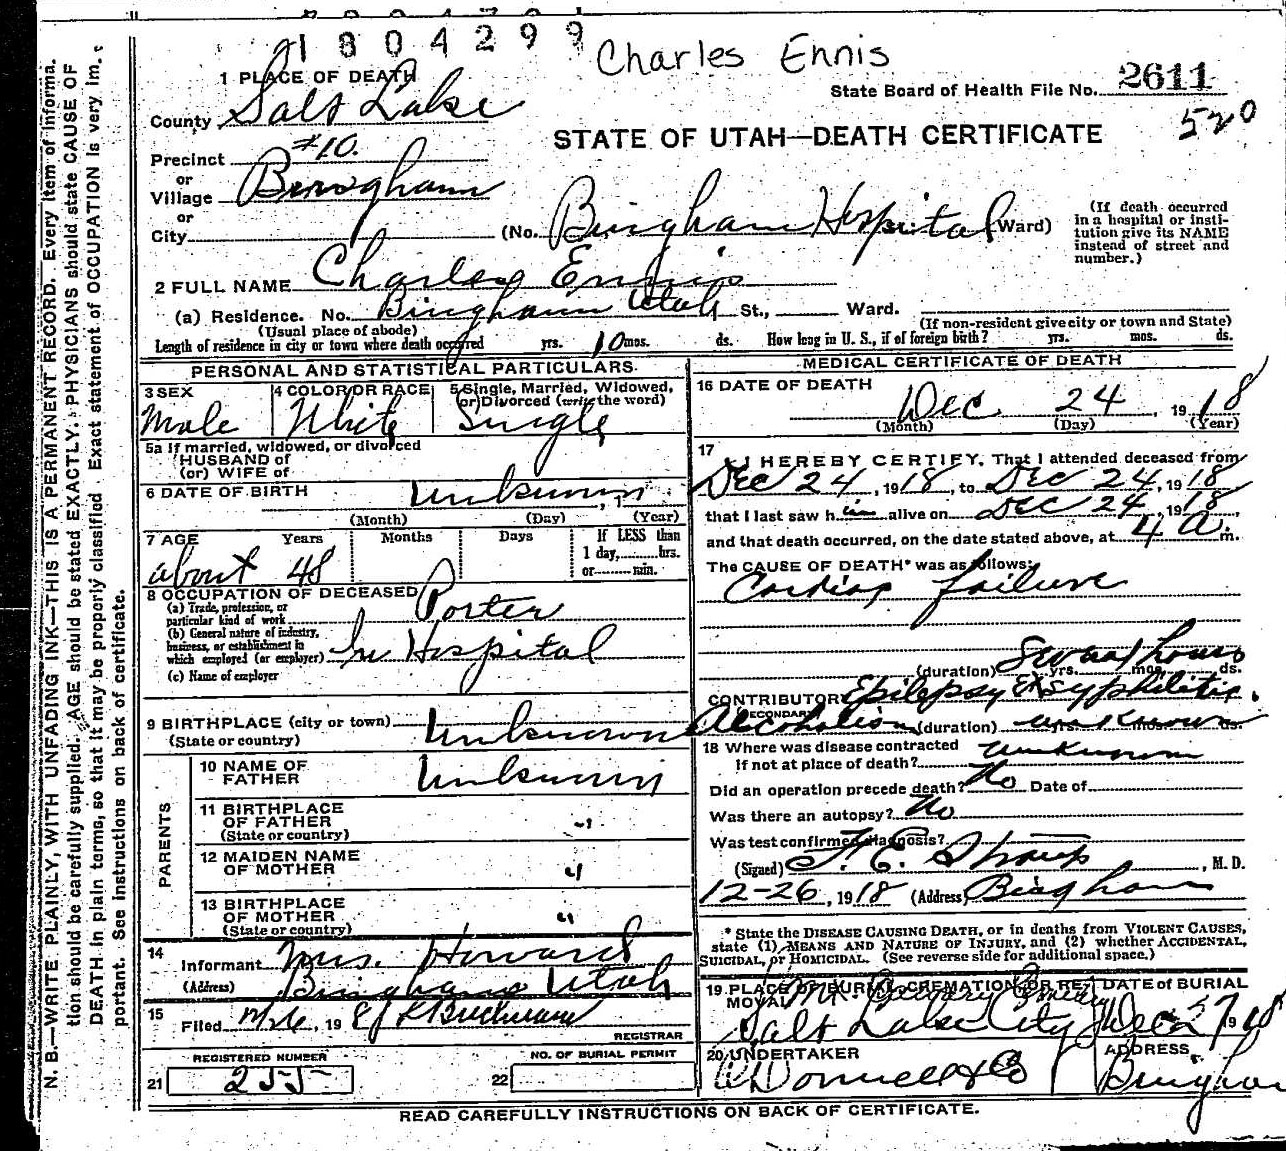 1804299
Charles Ennis
State Board of Health File No. 2611
520
STATE OF UTAH—DEATH CERTIFICATE
1 PLACE OF DEATH
County Salt Lake
Precinct #10.
or
Village Bingham
or
City
(No. Bingham Hospital Ward)
(If death occurred in a hospital or insti-
tution give its NAME instead of street and number.)
2 FULL NAME Charles Ennis
(a) Residence. No. Bingham Utah St., Ward.
(Usual place of abode)
(If non-resident give city or town and State)
Length of residence in city or town where death occurred yrs. 10 mos. ds. How long in U. S., if of foreign birth? yrs. mos. ds.
PERSONAL AND STATISTICAL PARTICULARS
3 SEX Male
4 COLOR OR RACE White
5 Single, Married, Widowed, (or) Divorced (write the word) Single
5a If married, widowed, or divorced
HUSBAND of
(or) WIFE of
6 DATE OF BIRTH unknown
(Month) (Day) (Year)
7 AGE Years Months Days If LESS than
1 day, hrs.
or min.
about 48
8 OCCUPATION OF DECEASED
(a) Trade, profession, or
particular kind of work Porter
(b) General nature of industry,
business, or establishment in
which employed (or employer) In Hospital
(c) Name of employer
9 BIRTHPLACE (city or town)
(State or country) Unknown
PARENTS
10 NAME OF
FATHER Unknown
11 BIRTHPLACE
OF FATHER "
(State or country)
12 MAIDEN NAME
OF MOTHER "
13 BIRTHPLACE
OF MOTHER "
(State or country)
14
Informant Mrs. Howard
(Address) Bingham Utah
15
Filed 12/26, 1918 Buchman
REGISTRAR
REGISTERED NUMBER
21 255
NO. OF BURIAL PERMIT
22
MEDICAL CERTIFICATE OF DEATH
16 DATE OF DEATH
Dec 24, 1918
(Month) (Day) (Year)
17
I HEREBY CERTIFY, That I attended deceased from
Dec 24, 1918, to Dec 24, 1918
that I last saw him alive on Dec 24, 1918,
and that death occurred, on the date stated above, at 4 A. m.
The CAUSE OF DEATH* was as follows:
Cardiac failure
(duration) Several hours yrs. mos. ds.
CONTRIBUTORY Epilepsy & syphilitic.
(SECONDARY)
Alcoholism (duration) unknown yrs. ds.
18 Where was disease contracted
if not at place of death? unknown
Did an operation precede death? No Date of
Was there an autopsy? No
Was test confirmed diagnosis?
(Signed) F. E. Straup, M. D.
12-26, 1918 (Address) Bingham
* State the DISEASE CAUSING DEATH, or in deaths from VIOLENT CAUSES,
state (1) MEANS AND NATURE OF INJURY, and (2) whether ACCIDENTAL,
SUICIDAL, or HOMICIDAL. (See reverse side for additional space.)
19 PLACE OF BURIAL, CREMATION OR RE-
MOVAL Mt. Calvary Cemetery
Salt Lake City
DATE of BURIAL
Dec 27 1918
20 UNDERTAKER
O'Donnell & Co
ADDRESS
Bingham
READ CAREFULLY INSTRUCTIONS ON BACK OF CERTIFICATE.
N. B.—WRITE PLAINLY, WITH UNFADING INK—THIS IS A PERMANENT RECORD. Every item of informa-
tion should be carefully supplied. AGE should be stated EXACTLY. PHYSICIANS should state CAUSE OF
DEATH in plain terms, so that it may be properly classified. Exact statement of OCCUPATION is very im-
portant. See instructions on back of certificate.